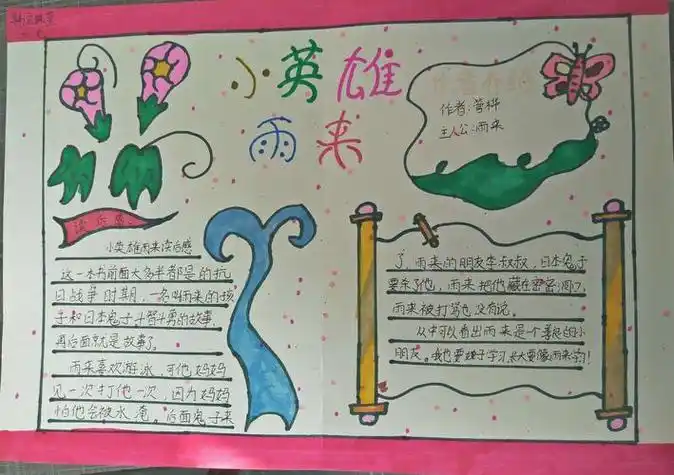 小英雄
雨来
作者:管桦
主人公:雨来
读后感
小英雄雨来读后感
这一本书前面大多半都是的抗
日战争时期,一名叫雨来的孩
子和日本鬼子斗智斗勇的故事,
再后面就是故事了。
雨来喜欢游泳,可他妈妈
见一次打他一次,因为妈妈
怕他会被水淹。后面鬼子来
了,雨来的朋友李叔叔,日本鬼子
要杀了他,雨来把他藏在密密洞了,
雨来被打骂也没有说。
从中可以看出雨来是个善良的小
朋友。我也要好子学习,长大要像雨来学习!